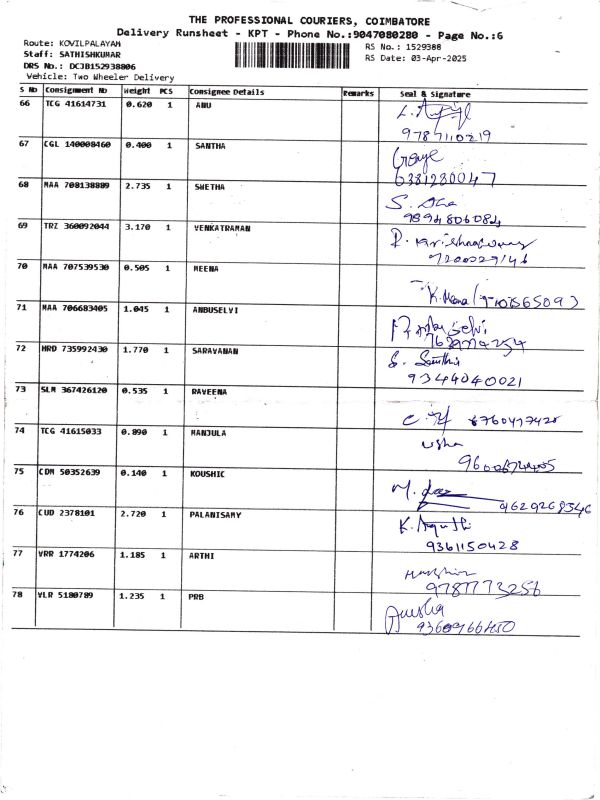 THE PROFESSIONAL COURIERS, COIMBATORE
Delivery Runsheet - KPT - Phone No.:9047080280 - Page No.:6
Route: KOVILPALAYAM
RS No. : 1529388
Staff: SATHISHKUMAR
RS Date: 03-Apr-2025
DRS No.: DCJB152938806
Vehicle: Two Wheeler Delivery
S No Consignment No Weight PCS Consignee Details Remarks Seal & Signature
66 TCG 41614731 0.620 1 ANU
9787110219
67 CGL 140008460 0.400 1 SANTHA
6381280047
68 MAA 708138889 2.735 1 SWETHA
9894806084
69 TRZ 360092044 3.170 1 VENKATRAMAN
7200029146
70 MAA 707539530 0.505 1 MEENA
K. Meena
71 MAA 706683405 1.045 1 ANBUSELVI
72 HRD 735992430 1.770 1 SARAVANAN
9344040021
73 SLM 367426120 0.535 1 RAVEENA
74 TCG 41615033 0.890 1 MANJULA
usha
75 CDM 50352639 0.140 1 KOUSHIC
9629268346
76 CUD 2378101 2.720 1 PALANISAMY
9361150428
77 VRR 1774206 1.185 1 ARTHI
9787773256
78 VLR 5180789 1.235 1 PRB